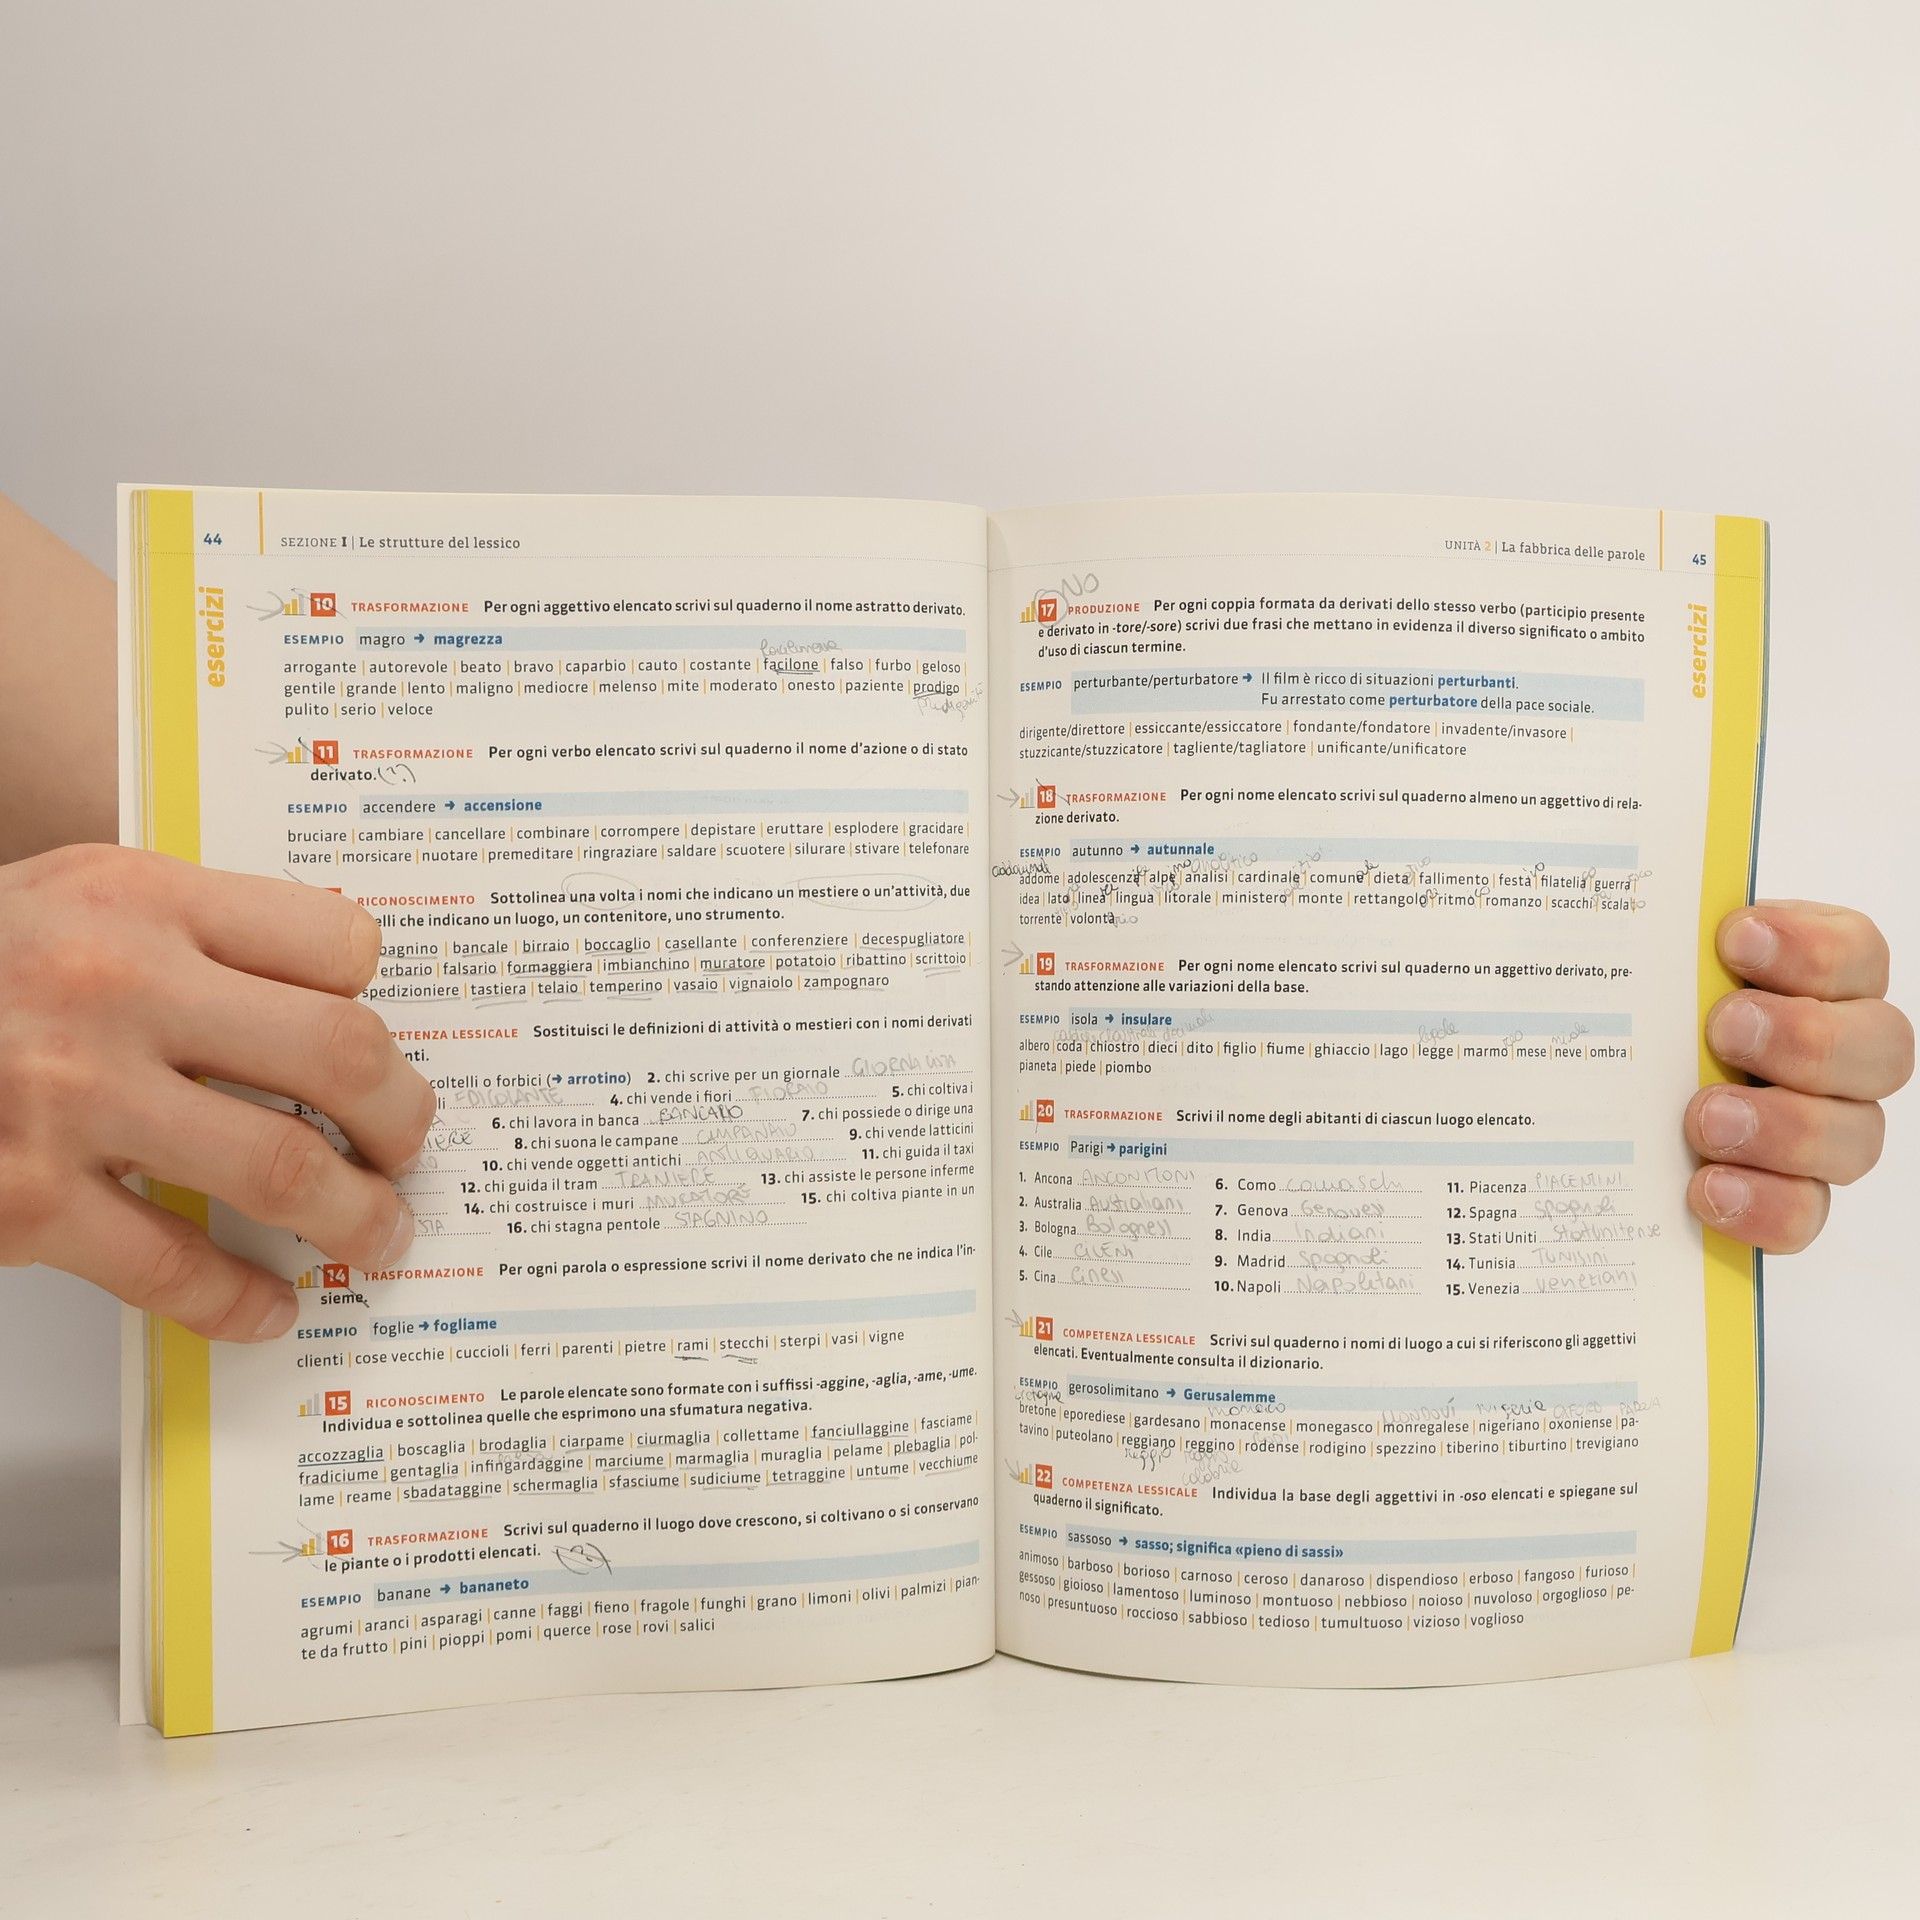 44
SEZIONE I | Le strutture del lessico
esercizi
10 TRASFORMAZIONE Per ogni aggettivo elencato scrivi sul quaderno il nome astratto derivato.
ESEMPIO magro → magrezza
arrogante | autorevole | beato | bravo | caparbio | cauto | costante | facilone | falso | furbo | geloso |
gentile | grande | lento | maligno | mediocre | melenso | mite | moderato | onesto | paziente | prodigo |
pulito | serio | veloce
11 TRASFORMAZIONE Per ogni verbo elencato scrivi sul quaderno il nome d'azione o di stato
derivato. (?)
ESEMPIO accendere → accensione
bruciare | cambiare | cancellare | combinare | corrompere | depistare | eruttare | esplodere | gracidare |
lavare | morsicare | nuotare | premeditare | ringraziare | saldare | scuotere | silurare | stivare | telefonare
RICONOSCIMENTO Sottolinea una volta i nomi che indicano un mestiere o un'attività, due
elli che indicano un luogo, un contenitore, uno strumento.
bagnino | bancale | birraio | boccaglio | casellante | conferenziere | decespugliatore |
erbario | falsario | formaggiera | imbianchino | muratore | potatoio | ribattino | scrittoio |
spedizioniere | tastiera | telaio | temperino | vasaio | vignaiolo | zampognaro
PETENZA LESSICALE Sostituisci le definizioni di attività o mestieri con i nomi derivati
nti.
coltelli o forbici (→ arrotino) 2. chi scrive per un giornale GIORNALISTA
3. li EDICOLANTE 4. chi vende i fiori FIORAIO 5. chi coltiva i
6. chi lavora in banca BANCARIO 7. chi possiede o dirige una
IERE 8. chi suona le campane CAMPANAIO 9. chi vende latticini
10. chi vende oggetti antichi ANTIQUARIO 11. chi guida il taxi
12. chi guida il tram TRANIERE 13. chi assiste le persone inferme
14. chi costruisce i muri MURATORE 15. chi coltiva piante in un
STA 16. chi stagna pentole STAGNINO
14 TRASFORMAZIONE Per ogni parola o espressione scrivi il nome derivato che ne indica l'in-
sieme.
ESEMPIO foglie → fogliame
clienti | cose vecchie | cuccioli | ferri | parenti | pietre | rami | stecchi | sterpi | vasi | vigne
15 RICONOSCIMENTO Le parole elencate sono formate con i suffissi -aggine, -aglia, -ame, -ume.
Individua e sottolinea quelle che esprimono una sfumatura negativa.
accozzaglia | boscaglia | brodaglia | ciarpame | ciurmaglia | collettame | fanciullaggine | fasciame |
fradiciume | gentaglia | infingardaggine | marciume | marmaglia | muraglia | pelame | plebaglia | pol-
lame | reame | sbadataggine | schermaglia | sfasciume | sudiciume | tetraggine | untume | vecchiume
16 TRASFORMAZIONE Scrivi sul quaderno il luogo dove crescono, si coltivano o si conservano
le piante o i prodotti elencati. (?)
ESEMPIO banane → bananeto
agrumi | aranci | asparagi | canne | faggi | fieno | fragole | funghi | grano | limoni | olivi | palmizi | pian-
te da frutto | pini | pioppi | pomi | querce | rose | rovi | salici
UNITÀ 2 | La fabbrica delle parole
45
esercizi
NO
17 PRODUZIONE Per ogni coppia formata da derivati dello stesso verbo (participio presente
e derivato in -tore/-sore) scrivi due frasi che mettano in evidenza il diverso significato o ambito
d'uso di ciascun termine.
ESEMPIO perturbante/perturbatore → Il film è ricco di situazioni perturbanti.
Fu arrestato come perturbatore della pace sociale.
dirigente/direttore | essiccante/essiccatore | fondante/fondatore | invadente/invasore |
stuzzicante/stuzzicatore | tagliente/tagliatore | unificante/unificatore
18 TRASFORMAZIONE Per ogni nome elencato scrivi sul quaderno almeno un aggettivo di rela-
zione derivato.
ESEMPIO autunno → autunnale
addome | adolescenza | alpe | analisi | cardinale | comune | dieta | fallimento | festa | filatelia | guerra |
idea | lato | linea | lingua | litorale | ministero | monte | rettangolo | ritmo | romanzo | scacchi | scala |
torrente | volontà
19 TRASFORMAZIONE Per ogni nome elencato scrivi sul quaderno un aggettivo derivato, pre-
stando attenzione alle variazioni della base.
ESEMPIO isola → insulare
albero | coda | chiostro | dieci | dito | figlio | fiume | ghiaccio | lago | legge | marmo | mese | neve | ombra |
pianeta | piede | piombo
20 TRASFORMAZIONE Scrivi il nome degli abitanti di ciascun luogo elencato.
ESEMPIO Parigi → parigini
1. Ancona ANCONITANI 6. Como comaschi 11. Piacenza PIACENTINI
2. Australia Australiani 7. Genova Genovesi 12. Spagna Spagnoli
3. Bologna Bolognesi 8. India Indiani 13. Stati Uniti Statunitense
4. Cile CILENI 9. Madrid Spagnoli 14. Tunisia TUNISINI
5. Cina Cinesi 10. Napoli Napoletani 15. Venezia veneziani
21 COMPETENZA LESSICALE Scrivi sul quaderno i nomi di luogo a cui si riferiscono gli aggettivi
elencati. Eventualmente consulta il dizionario.
ESEMPIO gerosolimitano → Gerusalemme
monaco MONDOVÍ nigeria
bretone | eporediese | gardesano | monacense | monegasco | monregalese | nigeriano | oxoniense | pa-
tavino | puteolano | reggiano | reggino | rodense | rodigino | spezzino | tiberino | tiburtino | trevigiano
reggio
calabria
22 COMPETENZA LESSICALE Individua la base degli aggettivi in -oso elencati e spiegane sul
quaderno il significato.
ESEMPIO sassoso → sasso; significa «pieno di sassi»
animoso | barboso | borioso | carnoso | ceroso | danaroso | dispendioso | erboso | fangoso | furioso |
gessoso | gioioso | lamentoso | luminoso | montuoso | nebbioso | noioso | nuvoloso | orgoglioso | pe-
noso | presuntuoso | roccioso | sabbioso | tedioso | tumultuoso | vizioso | voglioso